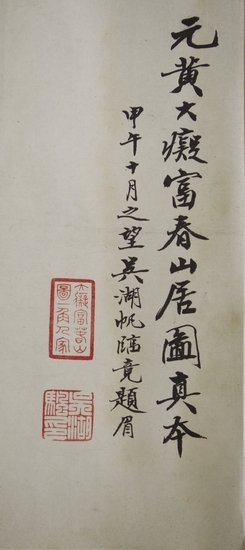 元黄大癡富春山居圖真本
甲午十月之望吳湖帆臨竟題眉
大癡富春山
圖一角人家
吳湖
颿印